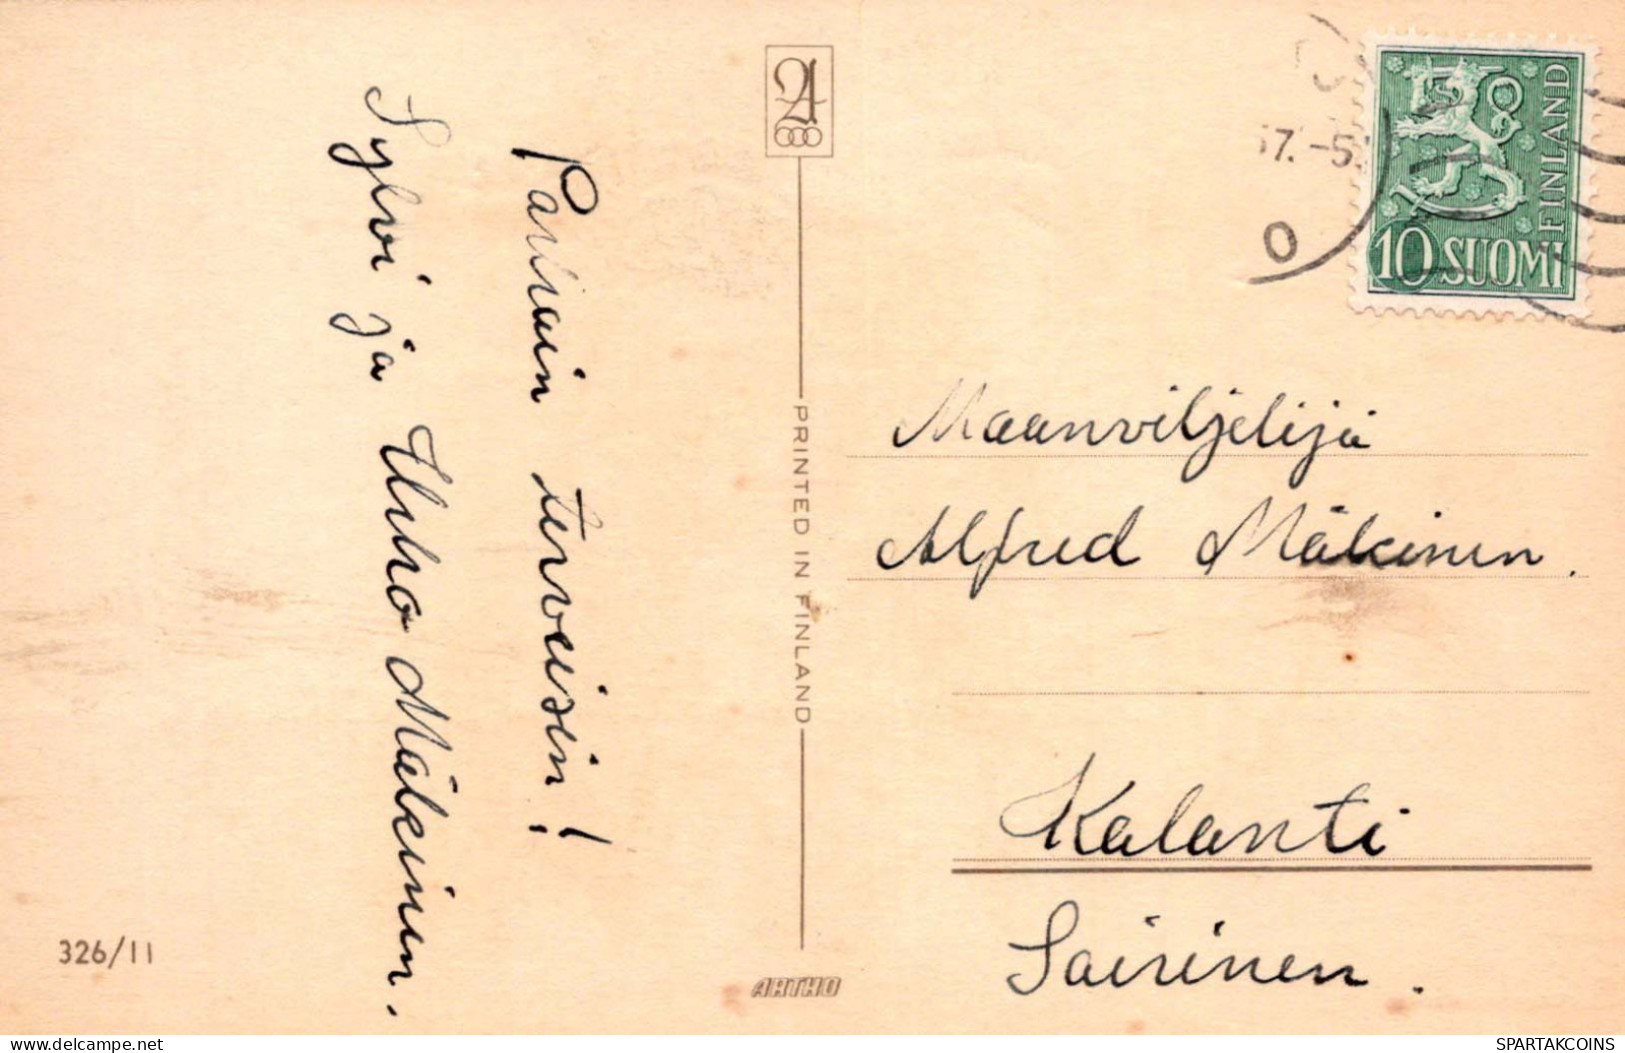 Parhain terveisin!
Sylvi ja Urho Mäkinen.
326/11
PRINTED IN FINLAND
ARTHO
7.-5.
O
FINLAND
10 SUOMI
Maanviljelijä
Alfred Mäkinen.
Kalanti
Sairinen.
Delcampe.net
SPARTAKCOINS